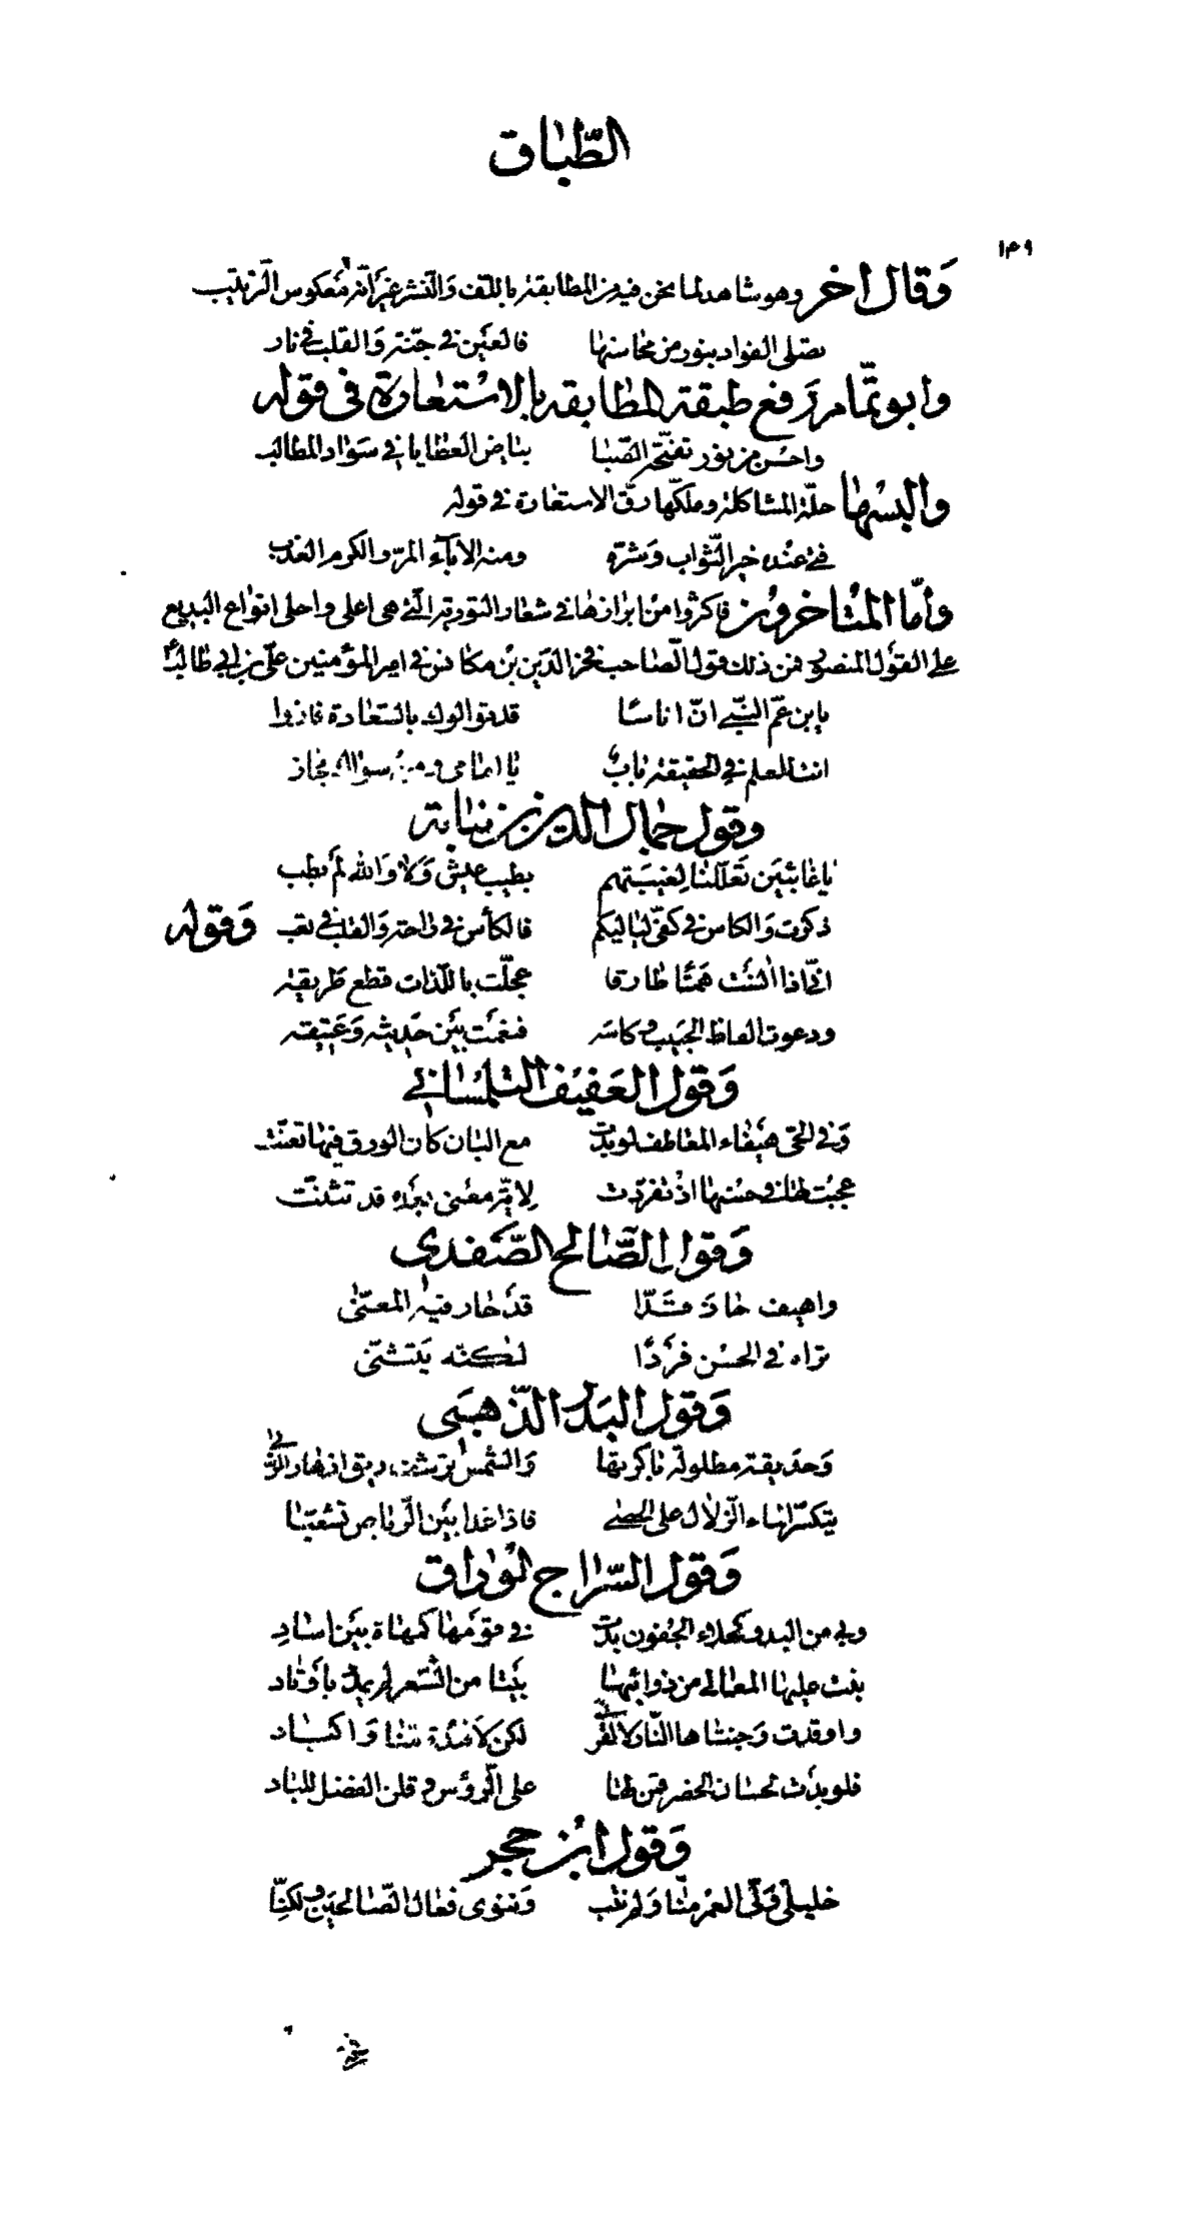 الطّباق
١٤٩
وَقال اخر وهو شاهد لما نحن فيه من المطابقة باللف وَالنشر غير أنّه معكوس الترتيب
يصلى الفواد بنور من محاسنها فالعين في جنّة وَالقلب في نار
وابو تمّام رفع طبقة المطابقه بالاستعارة في قوله
واحسن من نور تفتّحه الصّبا بياض العطايا في سَواد المطالب
والبسها حلّة المشاكلة وملكّها رقّ الاستعارة في قوله
خير الثّواب وَشرّه ومنه الاباء المرّ والكرم العذب
وأمّا المتاخرون فاكثروا من ابرازها في شعار التورية الّتي هي اعلى واحلى انواع البديع
على القول المنصور فمن ذلك قول الصّاحب فخر الدّين بن مكانس في امير المؤمنين علىّ بن ابي طالب
يا ابن عمّ النّبي انّ اناسًا قد توالوك بالسّعادة فازوا
انت للعلم في الحقيقة باب يا اماما وما سواك مجاز
وقول جمال الدين بن نباتة
يا غائبين تَعلّلنا لغيبَتهم بطيب عيش وَلا وَالله لم يطب
ذكرت وَالكاس في كفّي لياليكم فالكأس في راحة وَالقلب في تعب وَقوله
انّي اذا انست همّا طارقا عجلّت باللّذات قطع طريقه
ودعوت الفاظ الحبيب وكاسه فنعمت بين حَديثه وَعَتيقه
وَقول العَفيف التلمساني
وَفي الحي هيفاء المعاطف لو بدت مع البان كان الورق فيها تغنّت
عجبت لها في حسنها اذ تفردت لايّة معنى بعده قد تثنّت
وَقول الصّالح الصّفدي
واهيف حاز قدّا قد حار فيه المعنّى
تراه في الحسن فرْدًا لكنّه يَتثنّى
وَقول البدر الذّهبي
وَحديقة مطلولة باكرتها وَالشمس ترشف ريق ازهار الرّبى
يتكسّر الماء الزّلال على الحصى فاذا غدا بين الرّياض تشعّبا
وَقول السّراج الوراق
وبي من البدو كحلاء الجفون بدت في قومها كمهاة بين اساد
بنت عليها المعالي من ذوائبها بيتا من الشعر لم يمدد باوتاد
واوقدت وَجنتاها النّار لا لقرى لكن لافئدة منّا وَاكباد
فلو بدت لحسان الحضر قمن لها على الرّؤس وقلن الفضل للباد
وَقول ابن حجر
خليليّ وَلّى العمر منّا وَلم نتب وَننوى فعال الصّالحين ولكنّا